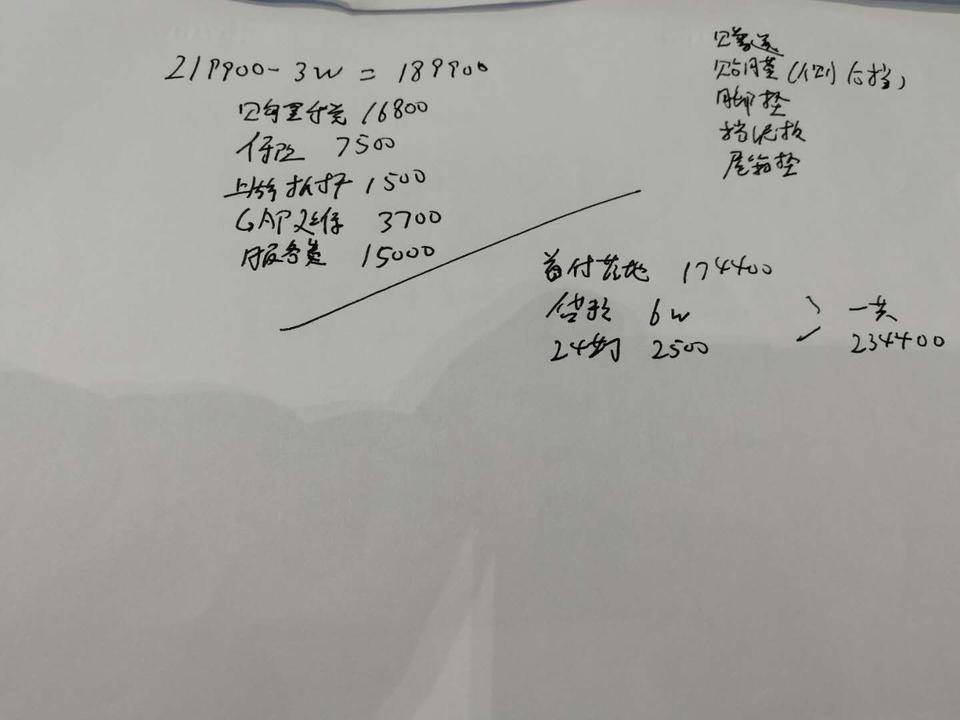 219900-3W = 189900
购置税 16800
保险 7500
上牌 1500
GAP延保 3700
服务费 15000
赠送
贴膜
脚垫
挡泥板
尾箱垫
首付落地 174400
贷款 6W
24期 2500
一共
234400